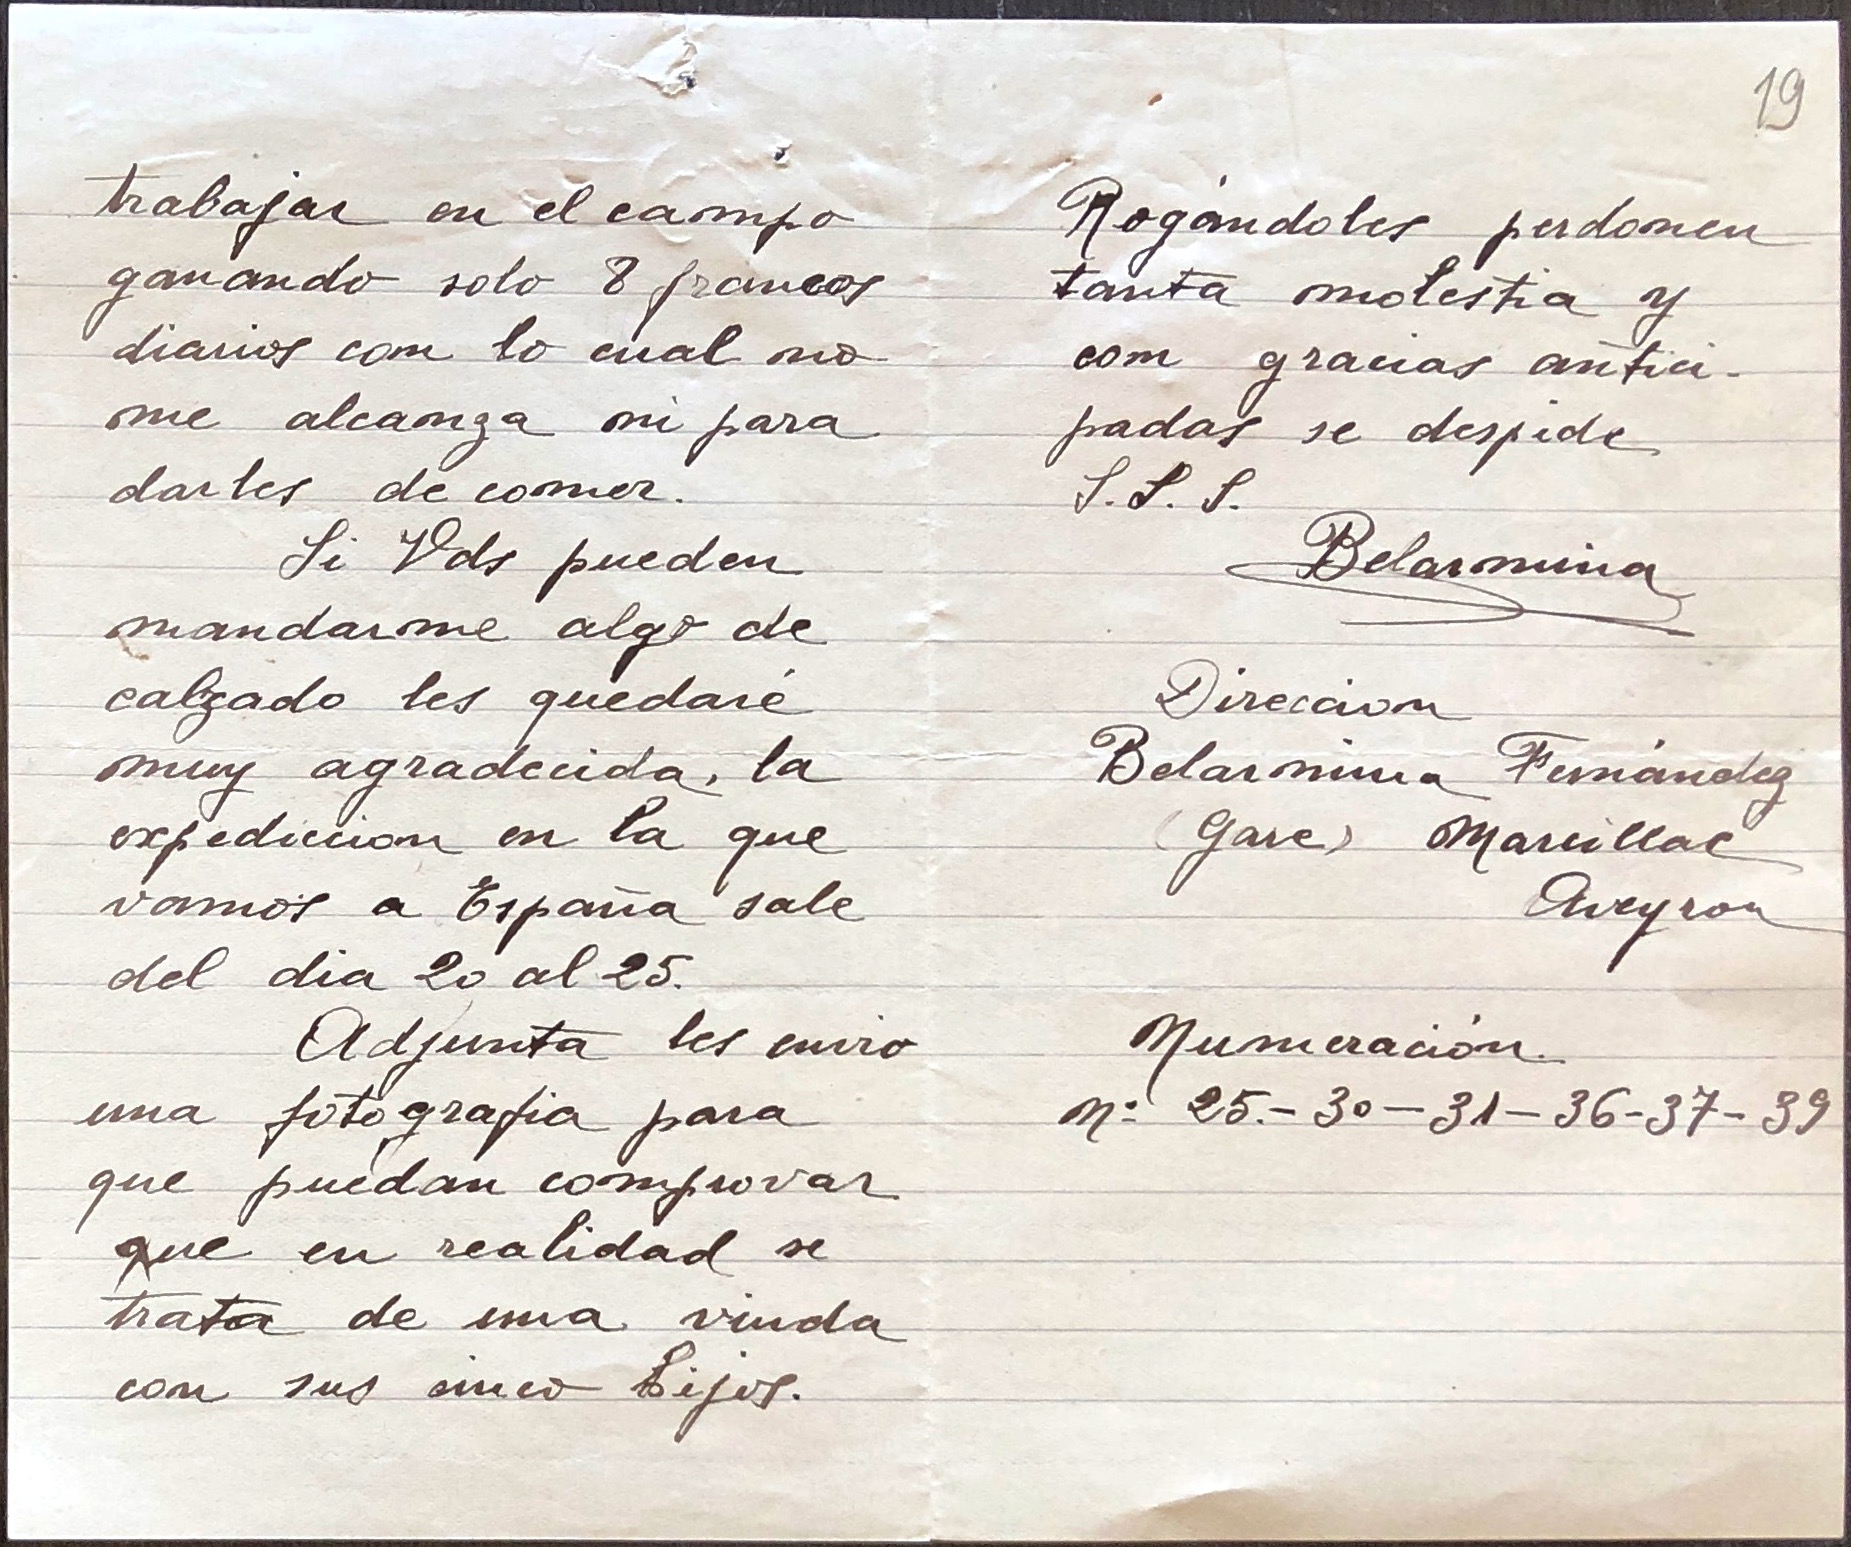 trabajar en el campo
ganando solo 8 francos
diarios con lo cual no
me alcanza ni para
darles de comer.
Si Vds pueden
mandarme algo de
calzado les quedaré
muy agradecida, la
expediccion en la que
vamos a España sale
del dia 20 al 25.
Adjunta les envio
una fotografia para
que puedan comprovar
que en realidad se
trata de una viuda
con sus cinco hijos.
19
Rogándoles perdonen
tanta molestia y
con gracias antici-
padas se despide
S.S.S.
Belarmina
Direccion
Belarmina Fernández
(Gare) Marcillac
Aveyron
Numeración.
nº 25.-30-31-36-37-39